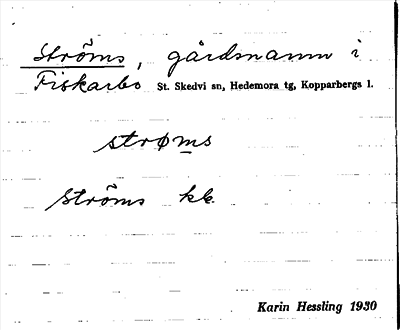 Ströms, gårdsnamn i
Fiskarbo St. Skedvi sn, Hedemora tg, Kopparbergs l.
strøms
Ströms kb.
Karin Hessling 1930